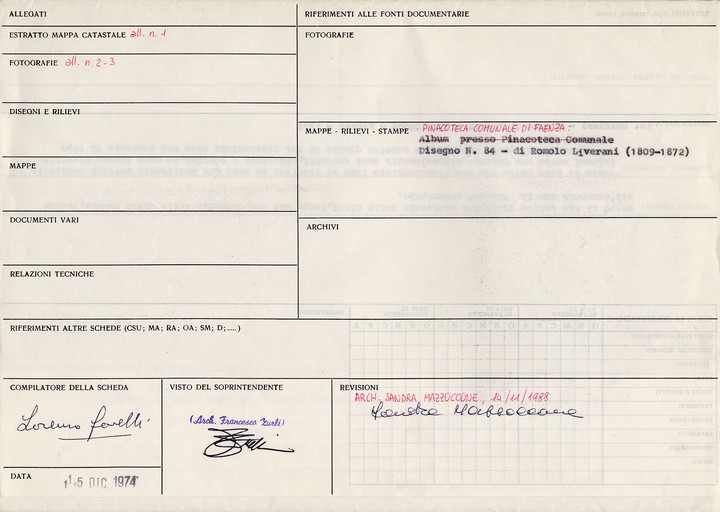 ALLEGATI
ESTRATTO MAPPA CATASTALE all. n. 1
FOTOGRAFIE all. n. 2-3
DISEGNI E RILIEVI
MAPPE
DOCUMENTI VARI
RELAZIONI TECNICHE
RIFERIMENTI ALLE FONTI DOCUMENTARIE
FOTOGRAFIE
MAPPE - RILIEVI - STAMPE PINACOTECA COMUNALE DI FAENZA:
Album presso Pinacoteca Comunale
Disegno N. 84 - di Romolo Liverani (1809-1872)
ARCHIVI
RIFERIMENTI ALTRE SCHEDE (CSU; MA; RA; OA; SM; D;.....)
COMPILATORE DELLA SCHEDA
Lorenzo
DATA
15 DIC. 1974
VISTO DEL SOPRINTENDENTE
(Arch. Francesco Zurli)
REVISIONI
ARCH. SANDRA MAZZOCCONE, 14/11/1988
Sandra Mazzoccone